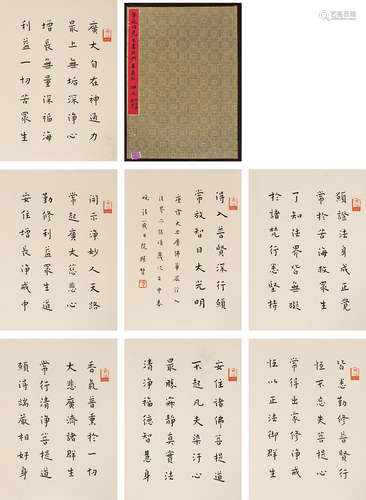 廣大自在神通力
最上無垢深淨心
增長無量深福海
利益一切苦眾生
願證法身成正覺
常於苦海救眾生
了知法界皆無礙
於諸梵行悉堅持
得入普賢深行願
常放智日大光明
開示淨妙人天路
常起廣大慈悲心
勤修利益眾生道
安住增長淨戒中
皆悉勤修普賢行
恆不忘失菩提心
常得出家修淨戒
恆以正法御群生
安住諸佛菩提道
不起凡夫染汙心
最勝寂靜真實法
清淨福德智慧身
香氣普熏於一切
大悲廣濟諸群生
常行清淨菩提道
願得端嚴相好身